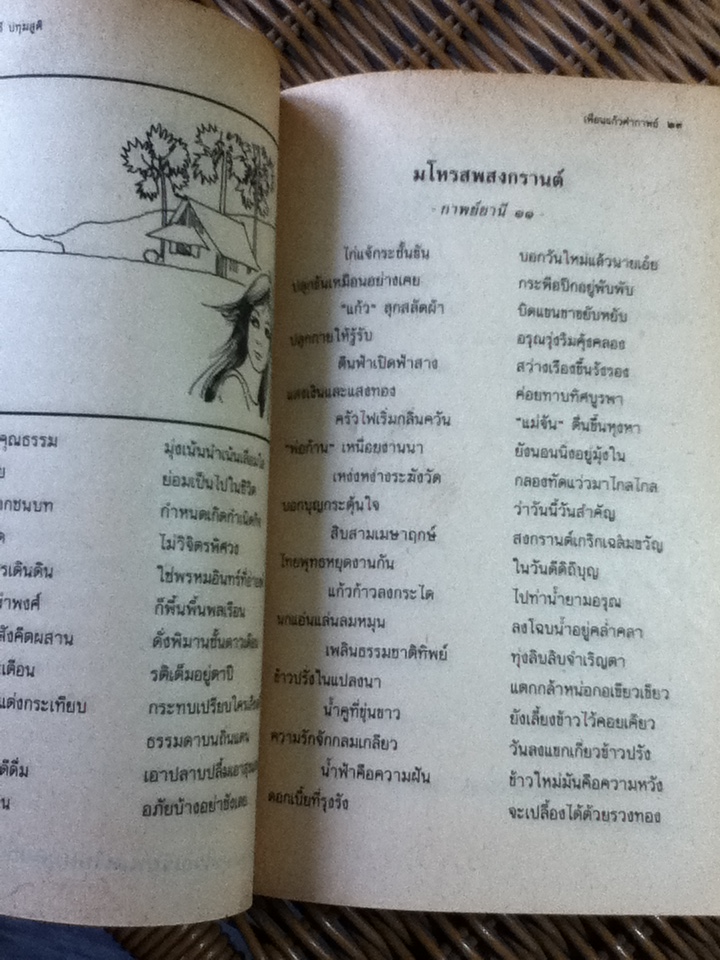 ปทุมสูติ
คุณธรรม มุ่งเน้น
ย่อมเป็นไปในชีวิต
กชนบท กำหนดเกิด
ไม่วิจิตรพิศวง
รเดินดิน ใช่พรหมอินทร์
พงศ์ ก็พื้นพื้นพลเรือน
สังคีตผสาน ดั่งพิมานชั้นดาวเดือน
เตือน รติเต็มอยู่ตาปี
แต่งกระเทียบ กระทบเปรียบ
ธรรมดาบนถิ่นแคน
ดีดื่ม เอาปลาบปลื้ม
น อภัยบ้างอย่าชัง
เพียนแก้วคำกาพย์ ๒๓
มโหรสพสงกรานต์
- กาพย์ยานี ๑๑ -
ไก่แจ้กระชั้นขัน บอกวันใหม่แล้วนายเอ๋ย
ปลุกขันเหมือนอย่างเคย กระพือปีกอยู่พับพับ
"แก้ว" ลุกสลัดผ้า บิดแขนขาขยับหยับ
ปลุกกายให้รู้รับ อรุณรุ่งริมคุ้งคลอง
คืนฟ้าเปิดฟ้าสาง สว่างเรืองขึ้นรังรอง
แสงเงินและแสงทอง ค่อยทาบทิศบูรพา
ครัวไฟเริ่มกลิ่นควัน "แม่จัน" ตื่นขึ้นหุงหา
"พ่อก้าน" เหนื่อยงานนา ยังนอนนิ่งอยู่มุ้งใน
เหง่งหง่างระฆังวัด กลองทัดแว่วมาไกลไกล
บอกบุญกระตุ้นใจ ว่าวันนี้วันสำคัญ
สิบสามเมษาฤกษ์ สงกรานต์เกริกเฉลิมขวัญ
ไทยพุทธหยุดงานกัน ในวันดีดิถีบุญ
แก้วก้าวลงกระได ไปท่าน้ำยามอรุณ
นกแอ่นแล่นลมหมุน ลงโฉบน้ำอยู่คล่ำคลา
เพลินธรรมชาติทิพย์ ทุ่งลิบลิบจำเริญตา
ข้าวปรังในแปลงนา แตกกล้าหน่อกอเขียวเขียว
น้ำคูที่ขุ่นขาว ยังเลี้ยงข้าวไว้คอยเคียว
ความรักจักกลมเกลียว วันลงแขกเกี่ยวข้าวปรัง
น้ำฟ้าคือความฝัน ข้าวใหม่มันคือความหวัง
ดอกเบี้ยที่รุงรัง จะเปลื้องได้ด้วยรวงทอง